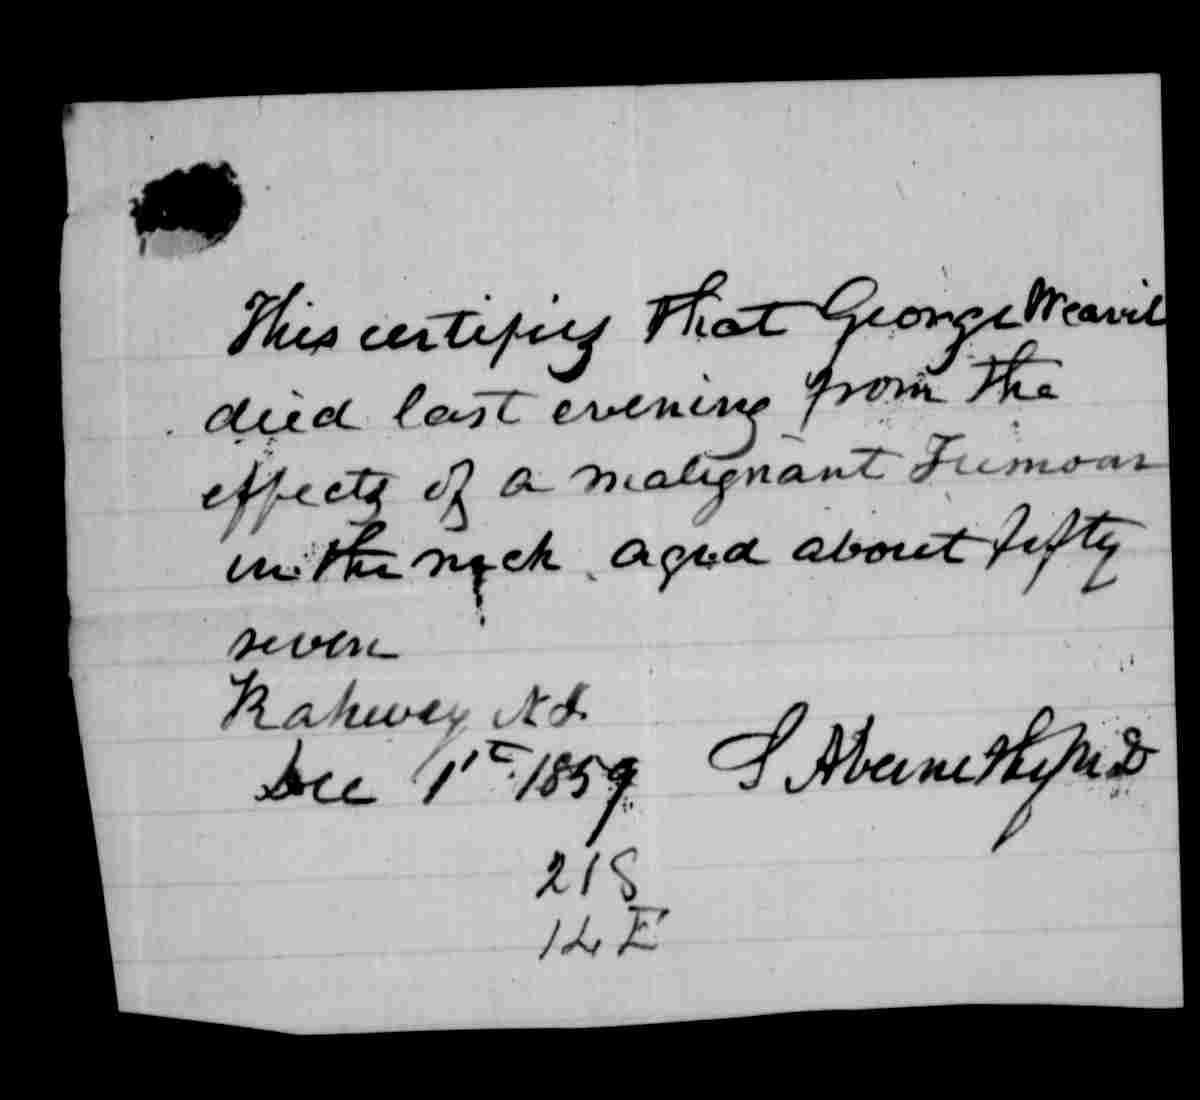 This certifies that George Weavil
died last evening from the
effects of a malignant Tumour
in the neck aged about fifty
seven
Rahway NJ.
Dec 1st 1859 S Abernethy MD
21 S
14 E